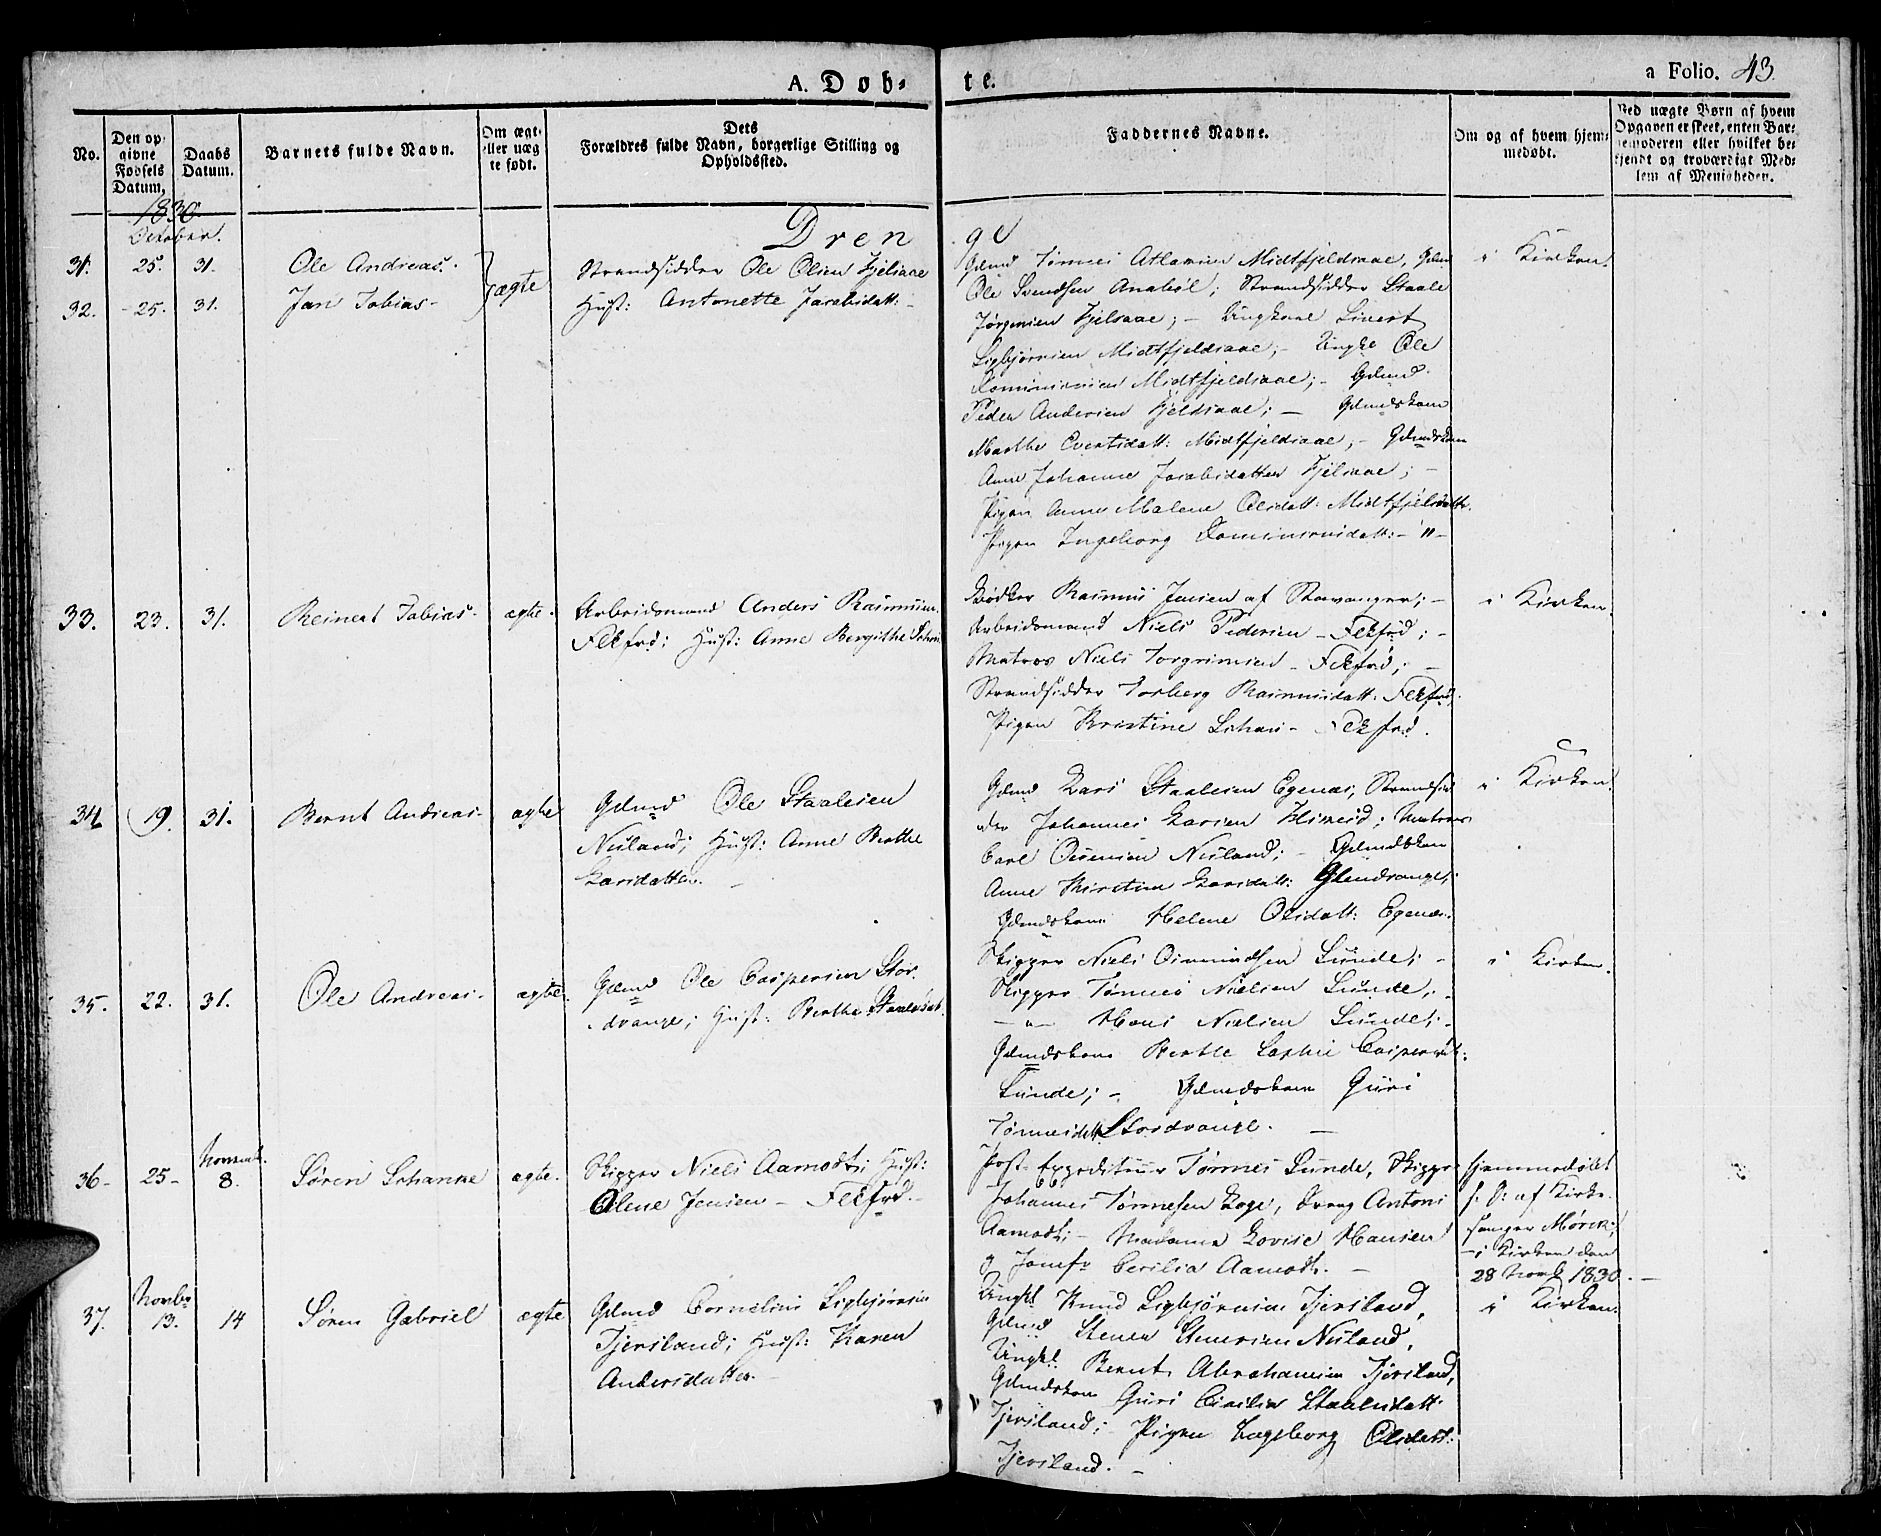 A. Døb-
te.
a Folio. 43.
No.
Den op-
givne
Fødsels
Datum,
Daabs
Datum.
Barnets fulde Navn.
Om ægt-
eller uæg
te født.
Dets
Forældres fulde Navn, borgerlige Stilling og
Opholdssted.
Faddernes Navne.
Om og af hvem hjem-
medøbt.
Ved uægte Børn af hvem
Opgaven er skeet, enten Bar-
nemoderen eller hvilket be-
kjendt og troværdigt Med-
lem af Menigheden.
1830.
October.
Dren
ge
31. 25. 31. Ole Andreas.
32. 25. 31. Jan Tobias
ægte
Strandsidder Ole Olsen
Hust: Antonette Jacobsdatt:
Gdmd Tønnes Atlaksen Midtfjeldsaae, Gdm
Ole Svendsen Anabøl; Strandsidder Staale
Jørgensen ; Ungkarl Sivert
Sigbjørnsen Midtfjeldsaae; Ungkl Ole
Midtfjeldsaae; Gdmd
Peder Andersen Fjeldsaae; Gdmdskone
Marthe Evertsdatt: Midtfjeldsaae, Gdmdskon
Anne Johanne Jacobsdatter ;
Pigen Anne Malene Olsdatt:
Pigen Ingeborg — " —
i Kirken.
33. 23. 31. Reinert Tobias. ægte.
Arbeidsmand Anders Rasmussen
Fekfrd; Hust: Anne Bergithe
Bødker Rasmus Jensen af Stavanger;
Arbeidsmand Niels Pedersen Fekfrd;
Matros Niels Torgrimsen Fekfrd;
Strandsidder Torberg Rasmusdatt: Fekfrd;
Pigen Kristine Fekfrd.
i Kirken.
34 19. 31. Bernt Andreas. ægte
Gdmd Ole Staalesen
Nuland; Hust: Anne Berthe
Larsdatter.
Gdmd Lars Staalesen Egenæs, Strandsid
der Johannes Larsen ; Matros
Carl Nuland; Gdmdskon
Anne Kirstine Larsdatt:
Gdmdskone Helene Olsdatt: Egenæs.
i Kirken.
35. 22. 31. Ole Andreas. ægte.
Gdmd Ole Caspersen Stor-
drange; Hust: Berthe
Skipper Niels Sunde;
Skipper Tønnes Nielsen Sunde;
— " — Hans Nielsen Sunde;
Gdmdskone Berthe Sophie
Sunde; Gdmdskone Guri
Tønnesdatt Stordrange.
i Kirken.
36 25 8. Søren Johanne ægte.
Skipper Niels Aamodt; Hust:
Olene Jensen Fekfrd.
Post Expediteur Tønnes Sunde, Skipper
Johannes Tønnesen Loge, Dreng Antoni
Aamodt; Madame Lovise Hansen
g Jomfr Cecilia Aamodt.
hjemmedøbt
af Kirke-
sanger
i Kirken den
28 Novb 1830.
37. Novbr 13. 14 Søren Gabriel ægte
Gdmd Cornelius Sigbjørnsen
Tjersland; Hust: Karen
Andersdatter.
Ungkl Knud Sigbjørnsen Tjersland,
Gdmd Stener Stenersen Nuland,
Ungkl Bernt Abrahamsen Tjersland,
Gdmdskon Guri Cecilia Staalesdatt
Tjersland; Pigen Ingeborg Olsdatt:
Tjersland.
i Kirken.